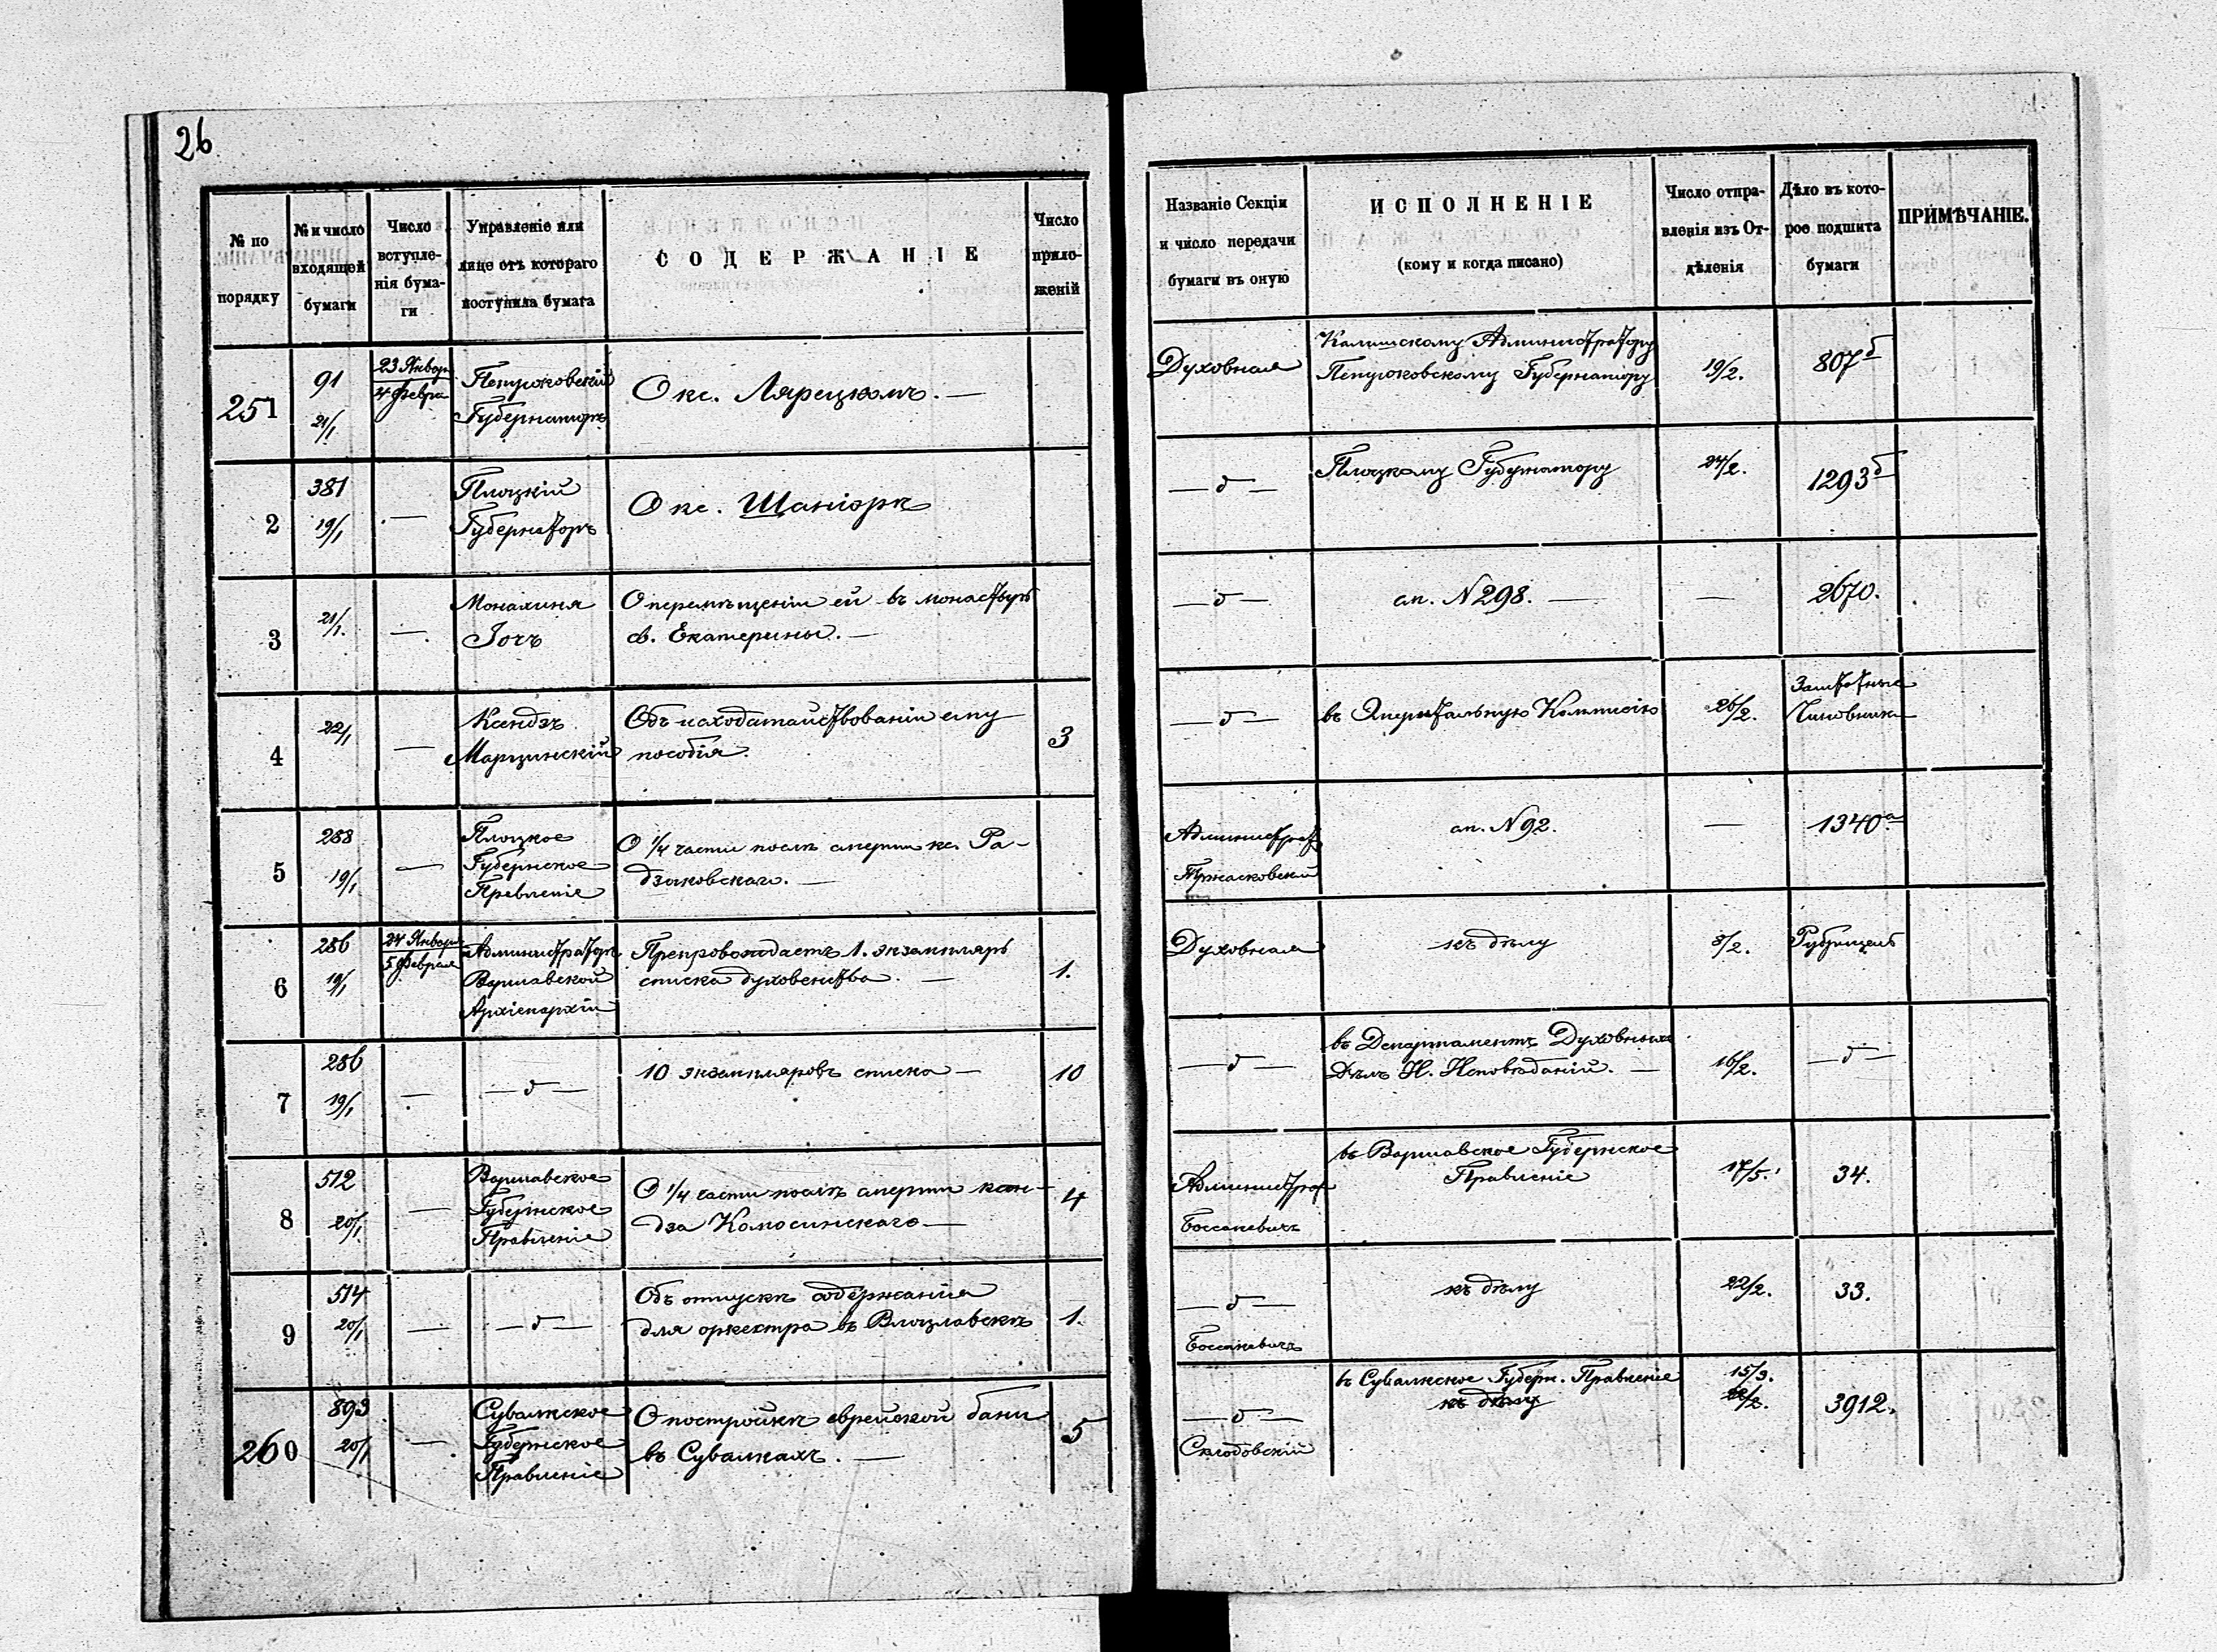 26
№ по порядку
№ и число входящей бумаги
Число вступле-
нія бума-
ги
Управленіе или
лице отъ котораго
поступила бумага
СОДЕРЖАНІЕ
Число
прило-
женій
Названіе Секціи
и число передачи
бумаги въ оную
ИСПОЛНЕНІЕ
(кому и когда писано)
Число отпра-
вленія изъ От-
дѣленія
Дѣло въ кото-
рое подшита
бумаги
ПРИМѢЧАНІЕ.
251
91
21/1
23 Январ
4 Февра
Петроковскій
Губернаторъ
О кс. Лярецкомъ. —
Духовная
Калишскому Администратору
Петроковскому Губернатору
19/2.
807б
2
381
19/1
—
Плоцкій
Губернаторъ
О кс. Шаніоръ
— д —
Плоцкому Губернатору
24/2.
1293б
3
21/1.
—
Монахиня
Зочъ
О перемѣщеніи ей въ монастырь
св. Екатерины. —
— д —
ап. N298. —
—
2670.
4
22/1
—
Ксендзъ
Марцинскій
Объ исходатайствованіи ему
пособія.
3
— д —
въ Эмеритальную Коммисію
26/2.
Заштатные
Чиновники
5
288
19/1
—
Плоцкое
Губернское
Правленіе
О 1/4 части послѣ смерти кс. Ра-
дзиковскаго. —
Администрат
ап. N92.
—
1340а
6
286
19/1
24 Январ
5 Февраля
Администраторъ
Варшавской
Архіепархіи
Препровождаетъ 1. экземпляръ
списка духовенства. —
1.
Духовная
къ дѣлу
3/2.
Рубрицель
7
286
19/1
—
— д —
10 экземпляровъ списка —
10
— д —
въ Департаментъ Духовныхъ
Дѣлъ И. Исповѣданій. —
16/2.
— д —
8
512
20/1.
—
Варшавское
Губернское
Правленіе
О 1/4 части послѣ смерти ксен-
дза Колосинскаго —
4
Администрат
Боссакевичъ
въ Варшавское Губернское
Правленіе
17/5.
34.
9
514
20/1
—
— д —
Объ отпускѣ содержанія
для оркестра въ Влоцлавскѣ
1.
— д —
Боссакевичъ
къ дѣлу
22/2.
33.
260
893
20/1
—
Сувалкское
Губернское
Правленіе
О постройкѣ еврейской бани
въ Сувалкахъ. —
5
— д —
Склодовскій
въ Сувалкское Губерн. Правленіе
къ дѣлу
15/3.
22/2.
3912.